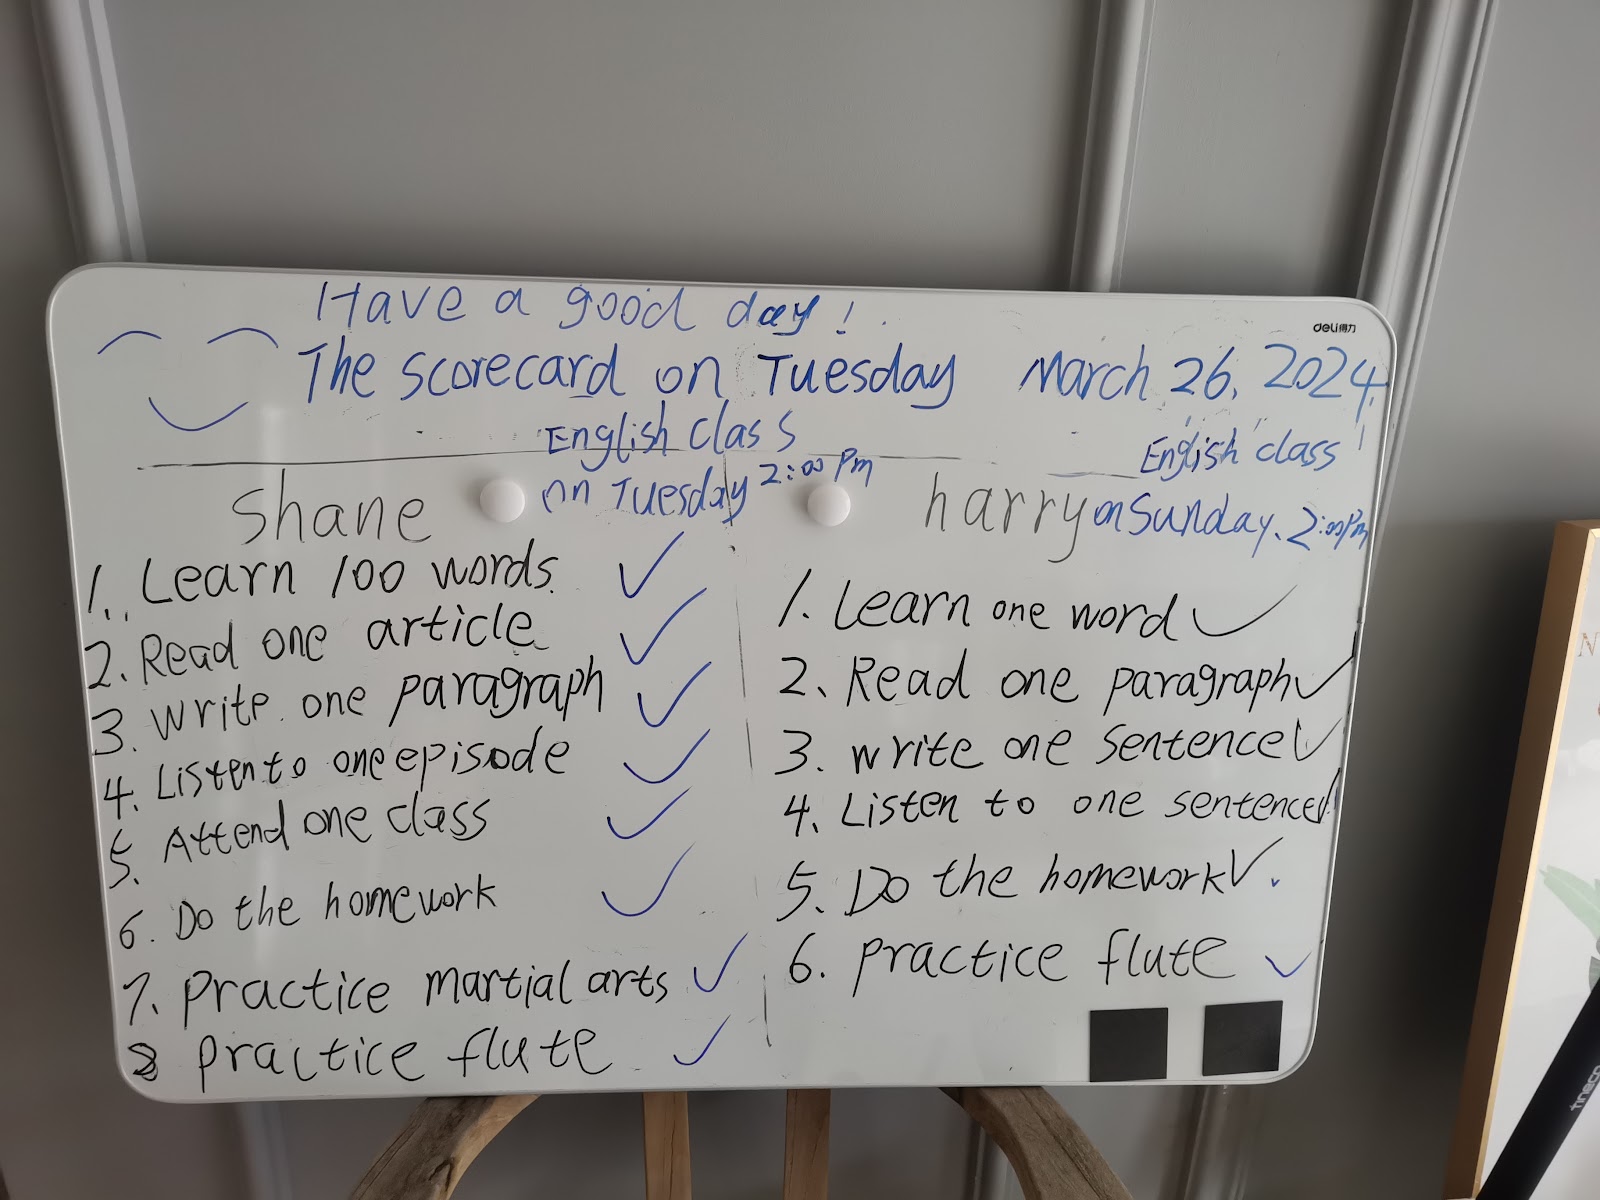 Have a good day!
deli得力
The scorecard on Tuesday March 26, 2024.
English class
on Tuesday 2:00 Pm
English class
on Sunday. 2:00Pm
Shane
1. Learn 100 words.
2. Read one article
3. Write one paragraph
4. Listen to one episode
5. Attend one class
6. Do the homework
7. Practice martial arts
8 Practice flute
harry
1. Learn one word
2. Read one paragraph
3. write one sentence
4. Listen to one sentence
5. Do the homework
6. Practice flute
tineco